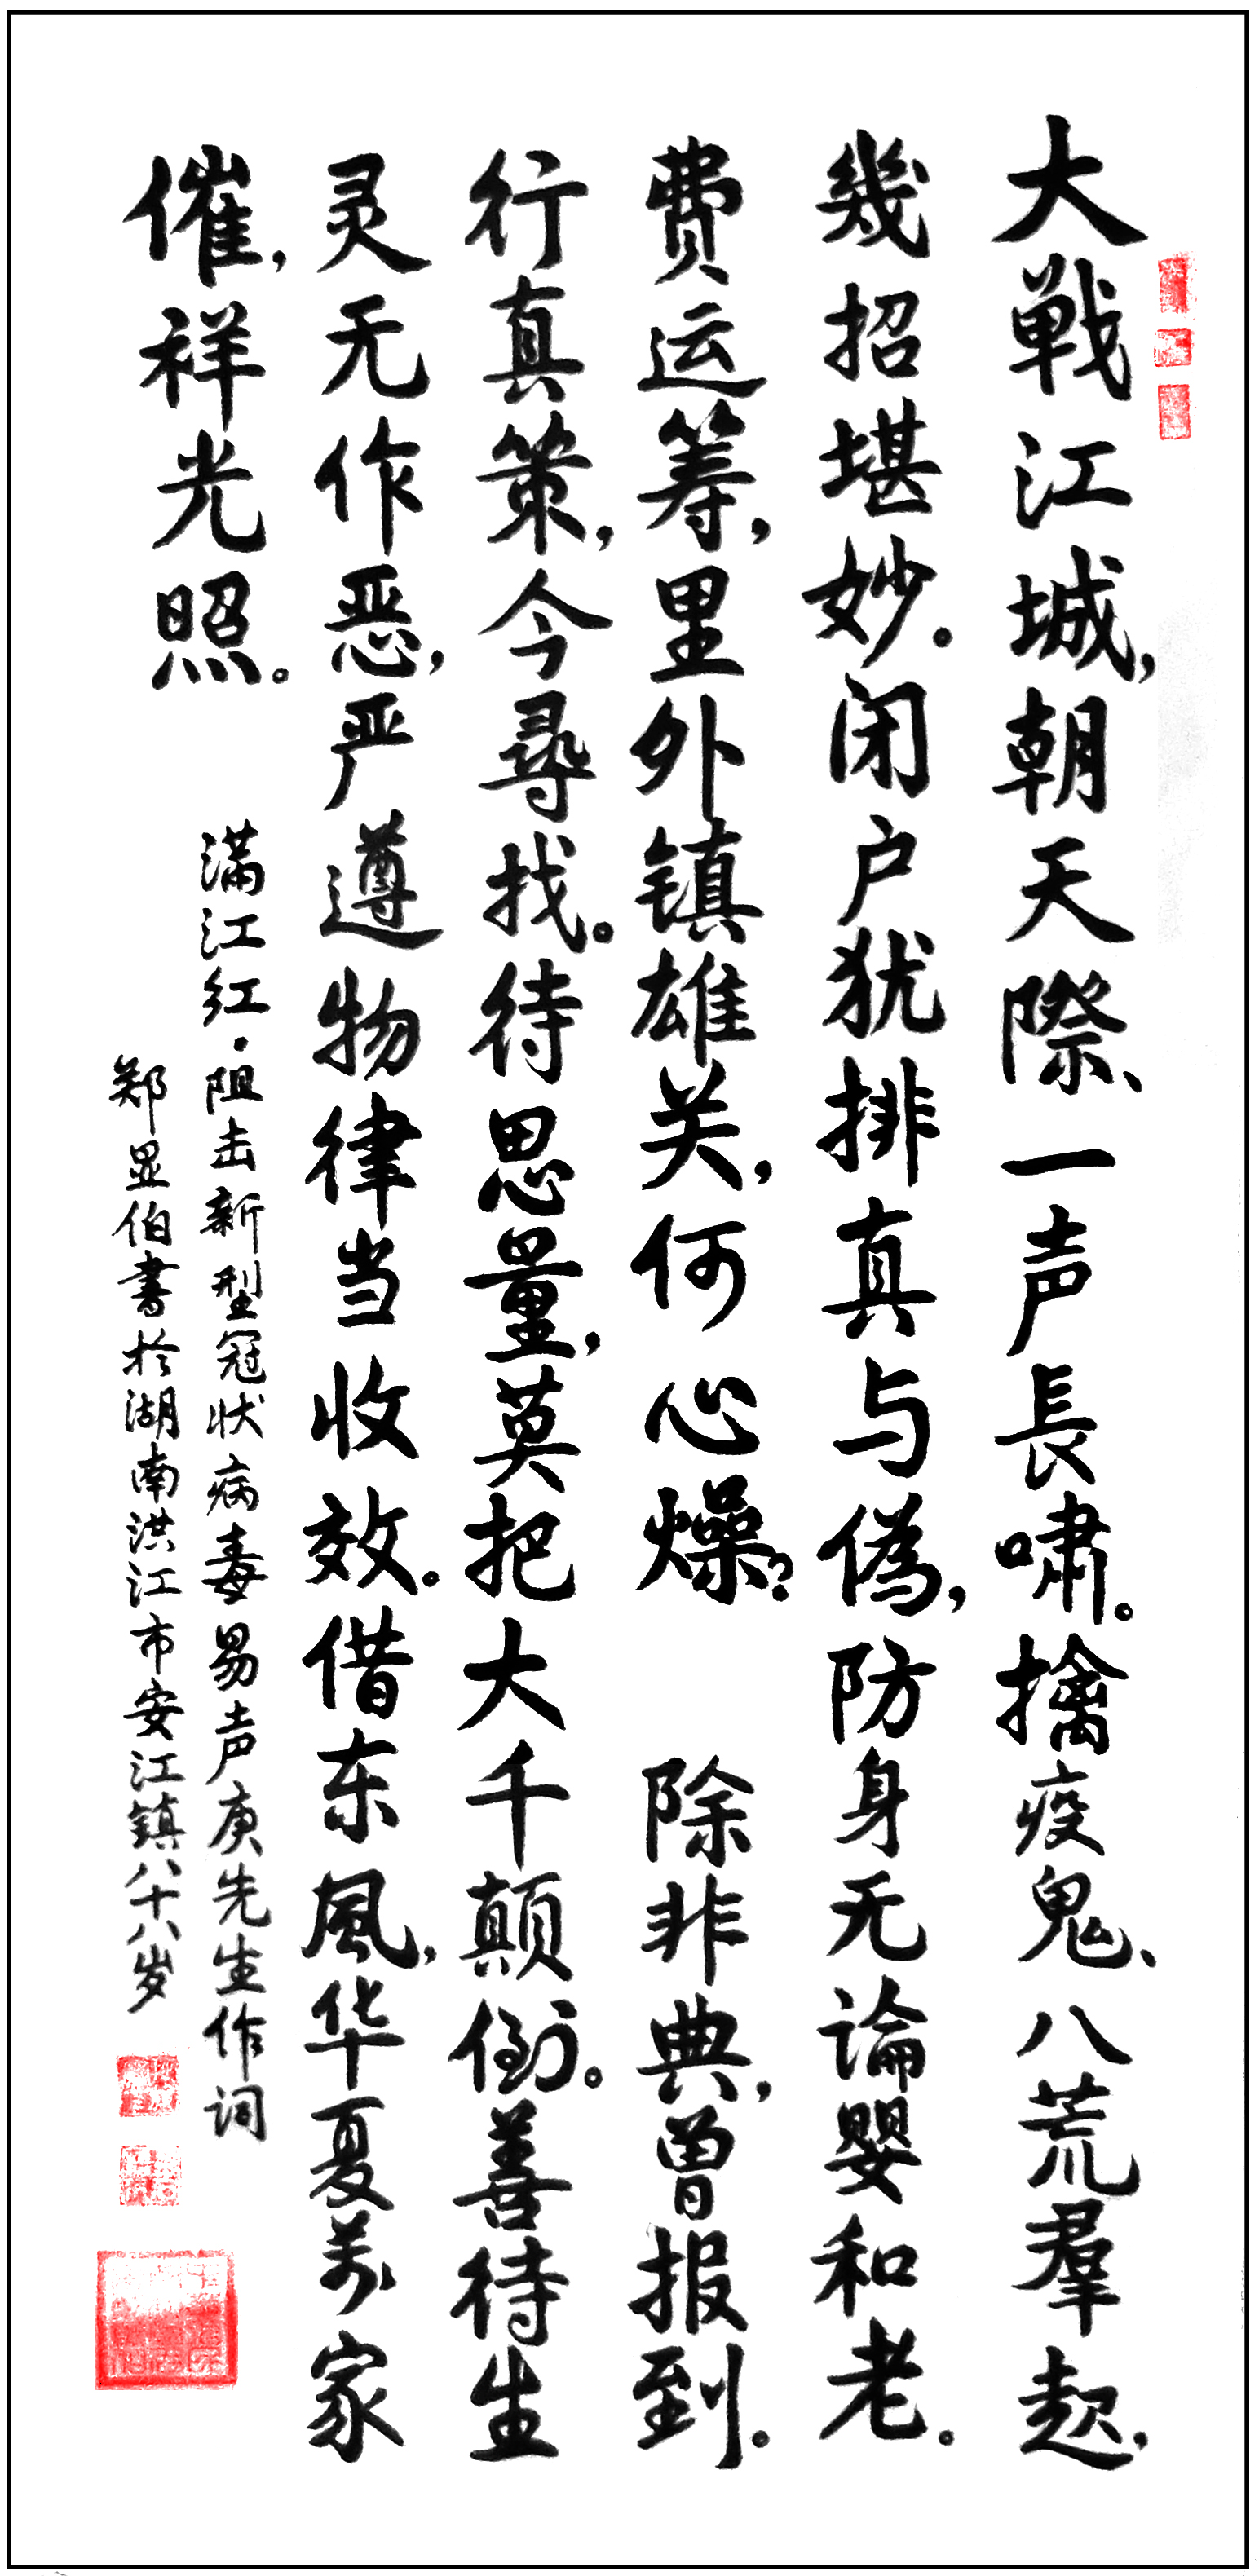 大戦江城，朝天際、一声長啸。擒疫鬼、八荒羣起，
幾招堪妙。闭户犹排真与偽，防身无論婴和老。
费运筹，里外镇雄关，何心燥？ 除非典，曾报到。
行真策，今尋找。待思量，莫把大千颠倒。善待生
灵无作恶，严遵物律当收效。借东風，华夏万家
催，祥光照。
满江红·阻击新型冠状病毒易声庚先生作词
郑显伯書於湖南洪江市安江镇八十八岁